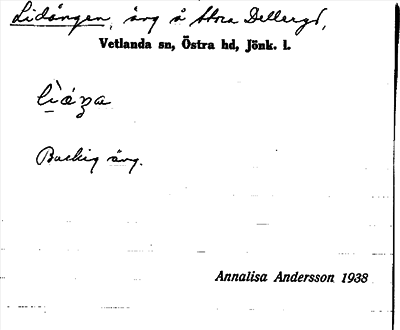 Lidängen, äng å Stora Dellergd,
Vetlanda sn, Östra hd, Jönk. l.
Backig äng.
Annalisa Andersson 1938